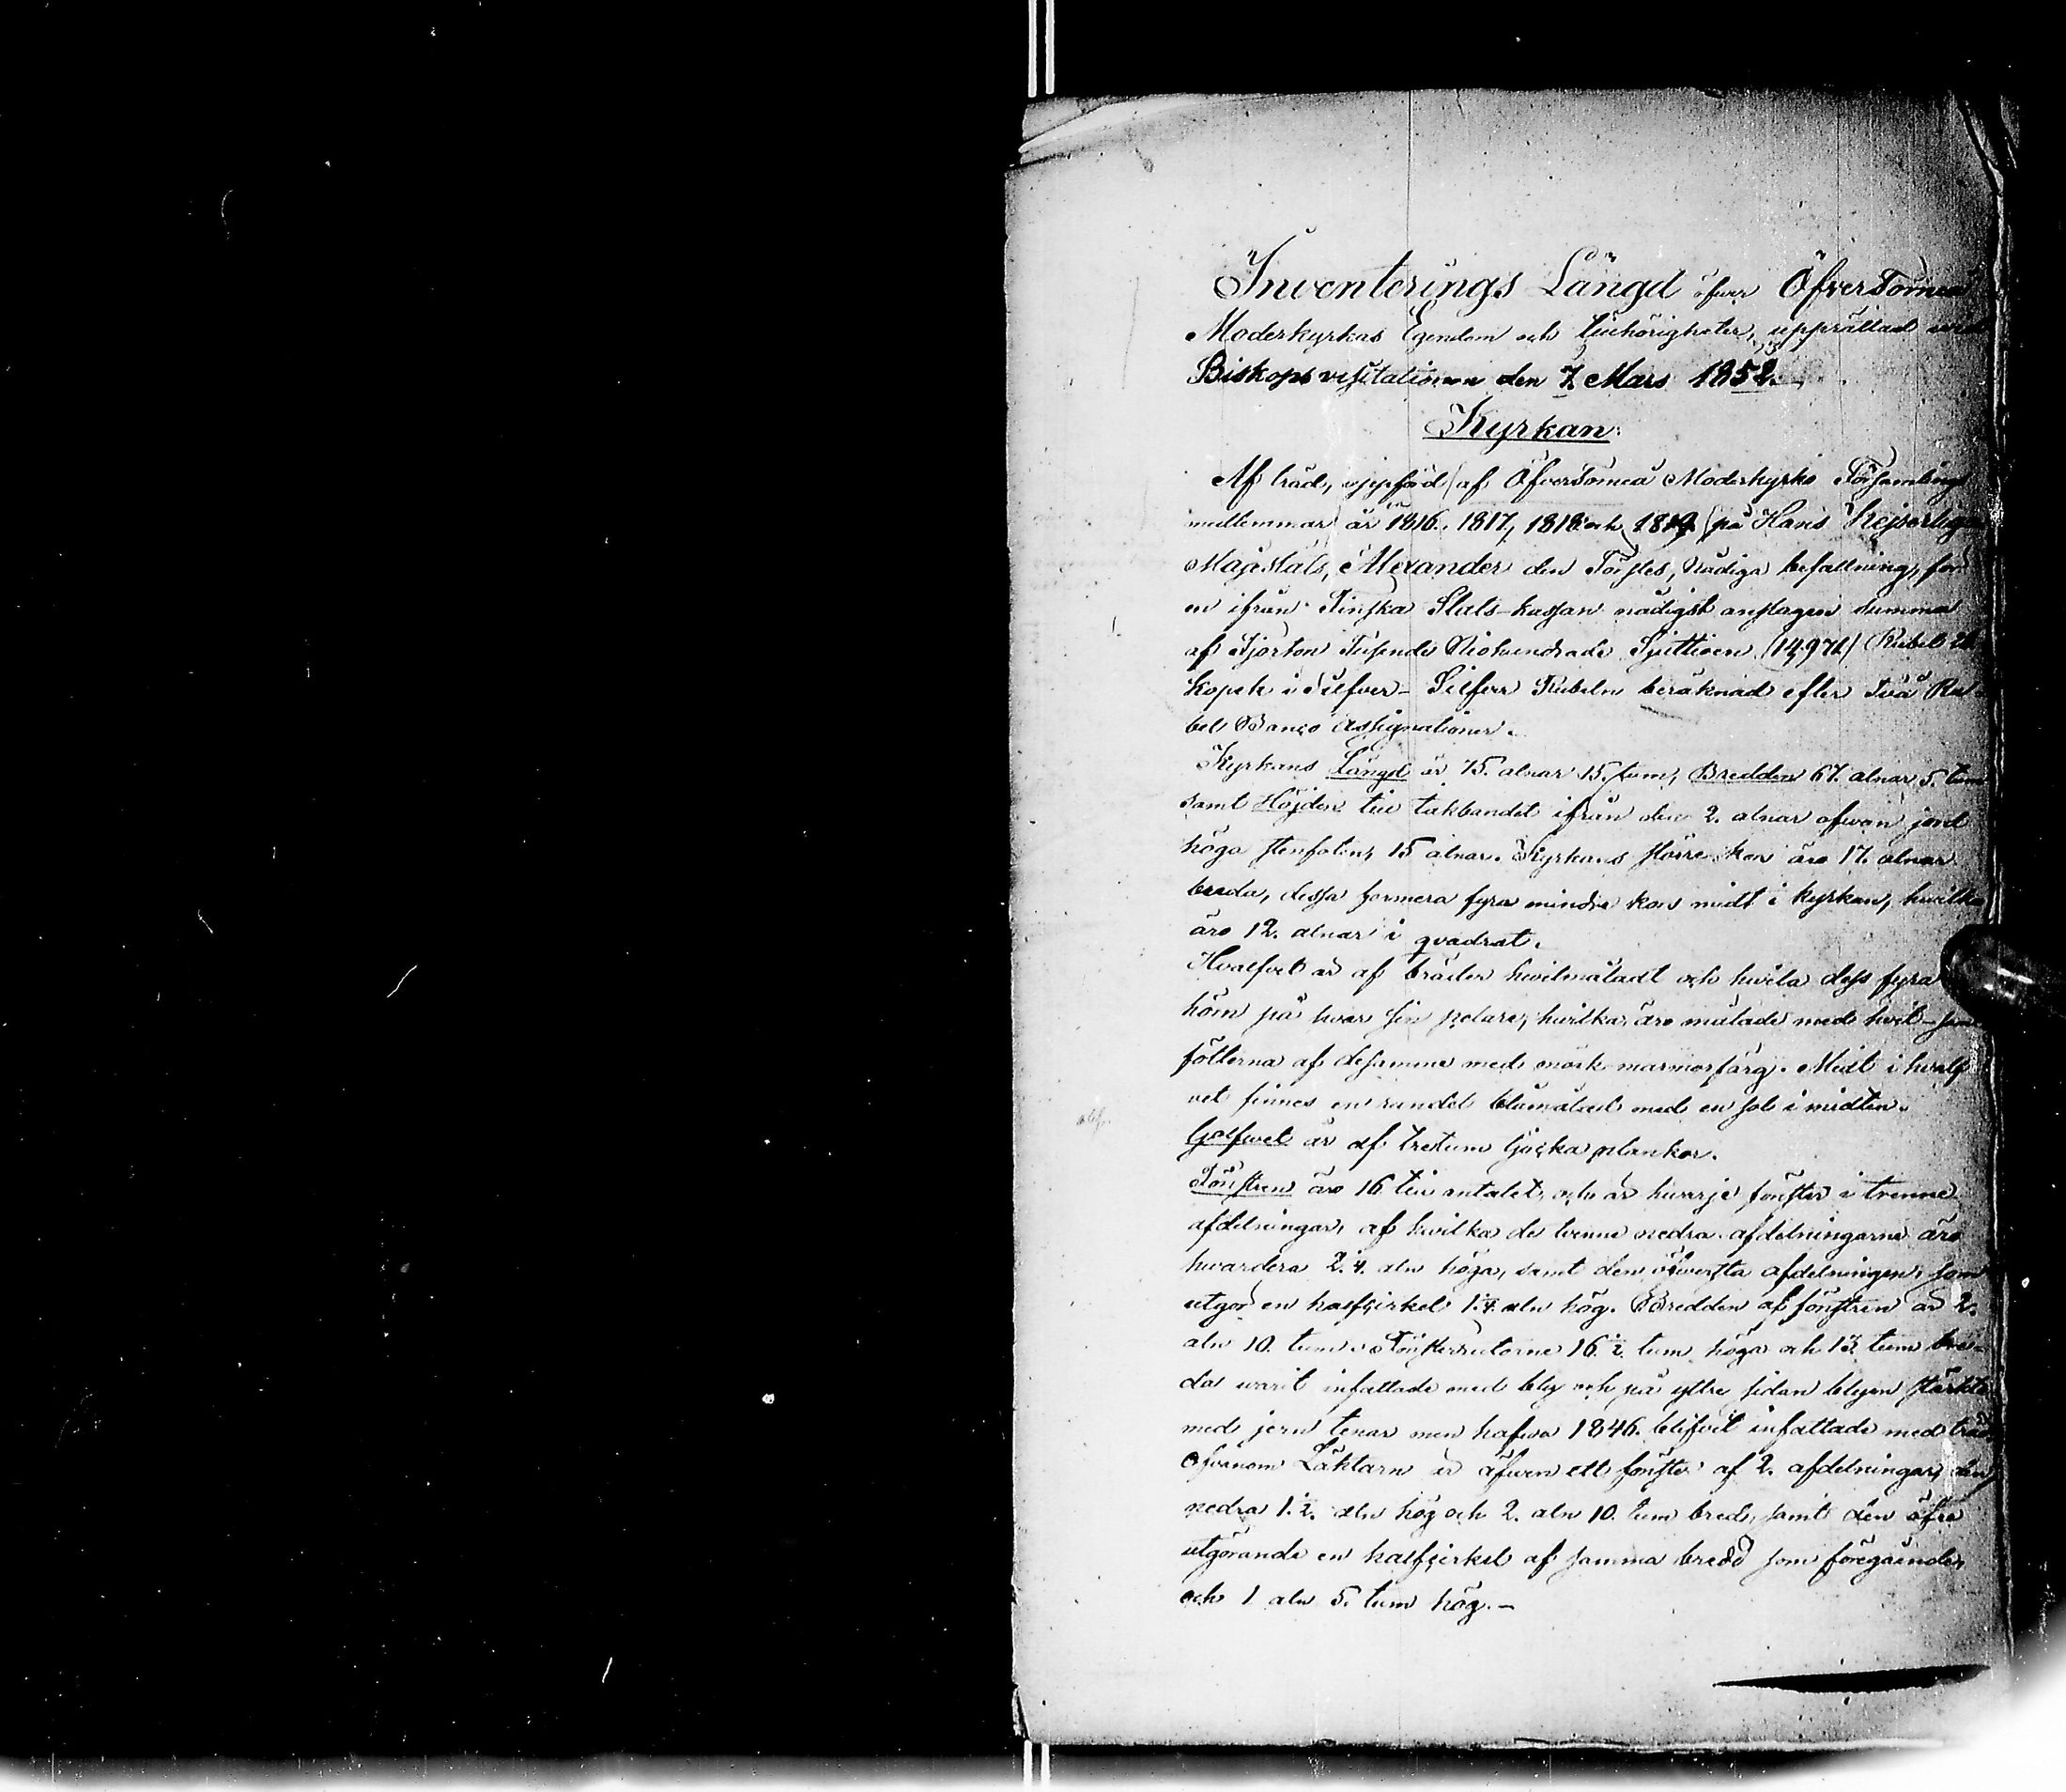 Inventerings Längd öfver ÖfverTorneå
Moderkyrkas Egendom och tillhörigheter, upprättad wid
Biskops visitationen den 7 Mars 1852.
Kyrkan:
Af träd, uppförd af ÖfverTorneå Moderkyrko Församlings
medlemmar år 1816. 1817, 1818 och 1819 på Hans Kejserliga
Majestäts, Alexander den Förstes, Nådiga befallning, för
en ifrån Finska Stats-kassan nådigst anslagen summa
af Fjorton Tusende Niohundrade Sjuttioen (14,971) Rubel
Kopek i Silfver - Silfver Rubeln beräknad efter Två Ru-
bel Banco Assignationer.
Kyrkans Längd är 75. alnar 15. tum, Bredden 67. alnar 5. tum
samt Höjden till takbandet ifrån den 2. alnar ofvan jord
höga stenfoten, 15 alnar. Kyrkans större kor äro 17. alnar
breda, dessa formera fyra mindre kors midt i kyrkan, hvilka
äro 12. alnar i qvadrat.
Hvalfvet är af bräder hvitmåladt och hvila dess fyra
hörn på hvar sin pelare, hvilka äro målade med hvit-
fötterna af desamma med mörk marmorfärg. Midt i hvalf
vet finnes en rundel blåmålad med en sol i midten.
Golfwet är af tretum tjocka plankor.
Fönstren äro 16 till antalet, och är hvarje fönster i trenne
afdelningar, af hvilka de tvenne nedra afdelningarna äro
hvardera 2.¼. aln höga, samt den öfwersta afdelningen, som
utgör en halfcirkel 1.¼ aln hög. Bredden af fönstren är 2.
aln 10. tum. Fönsterrutorne 16.½. tum höga och 13. tum bre-
da warit infattade med bly och på yttre sidan blyen stärkte
med jern tenar men hafwa 1846. blifvit infattade med träd.
Ofvanom Läktarn är äfwen ett fönster af 2. afdelningar, den
nedra 1.½. aln hög och 2. aln 10. tum bred, samt den öfre
utgörande en halfcirkel af samma bredd som föregående,
och 1 aln 5. tum hög.-